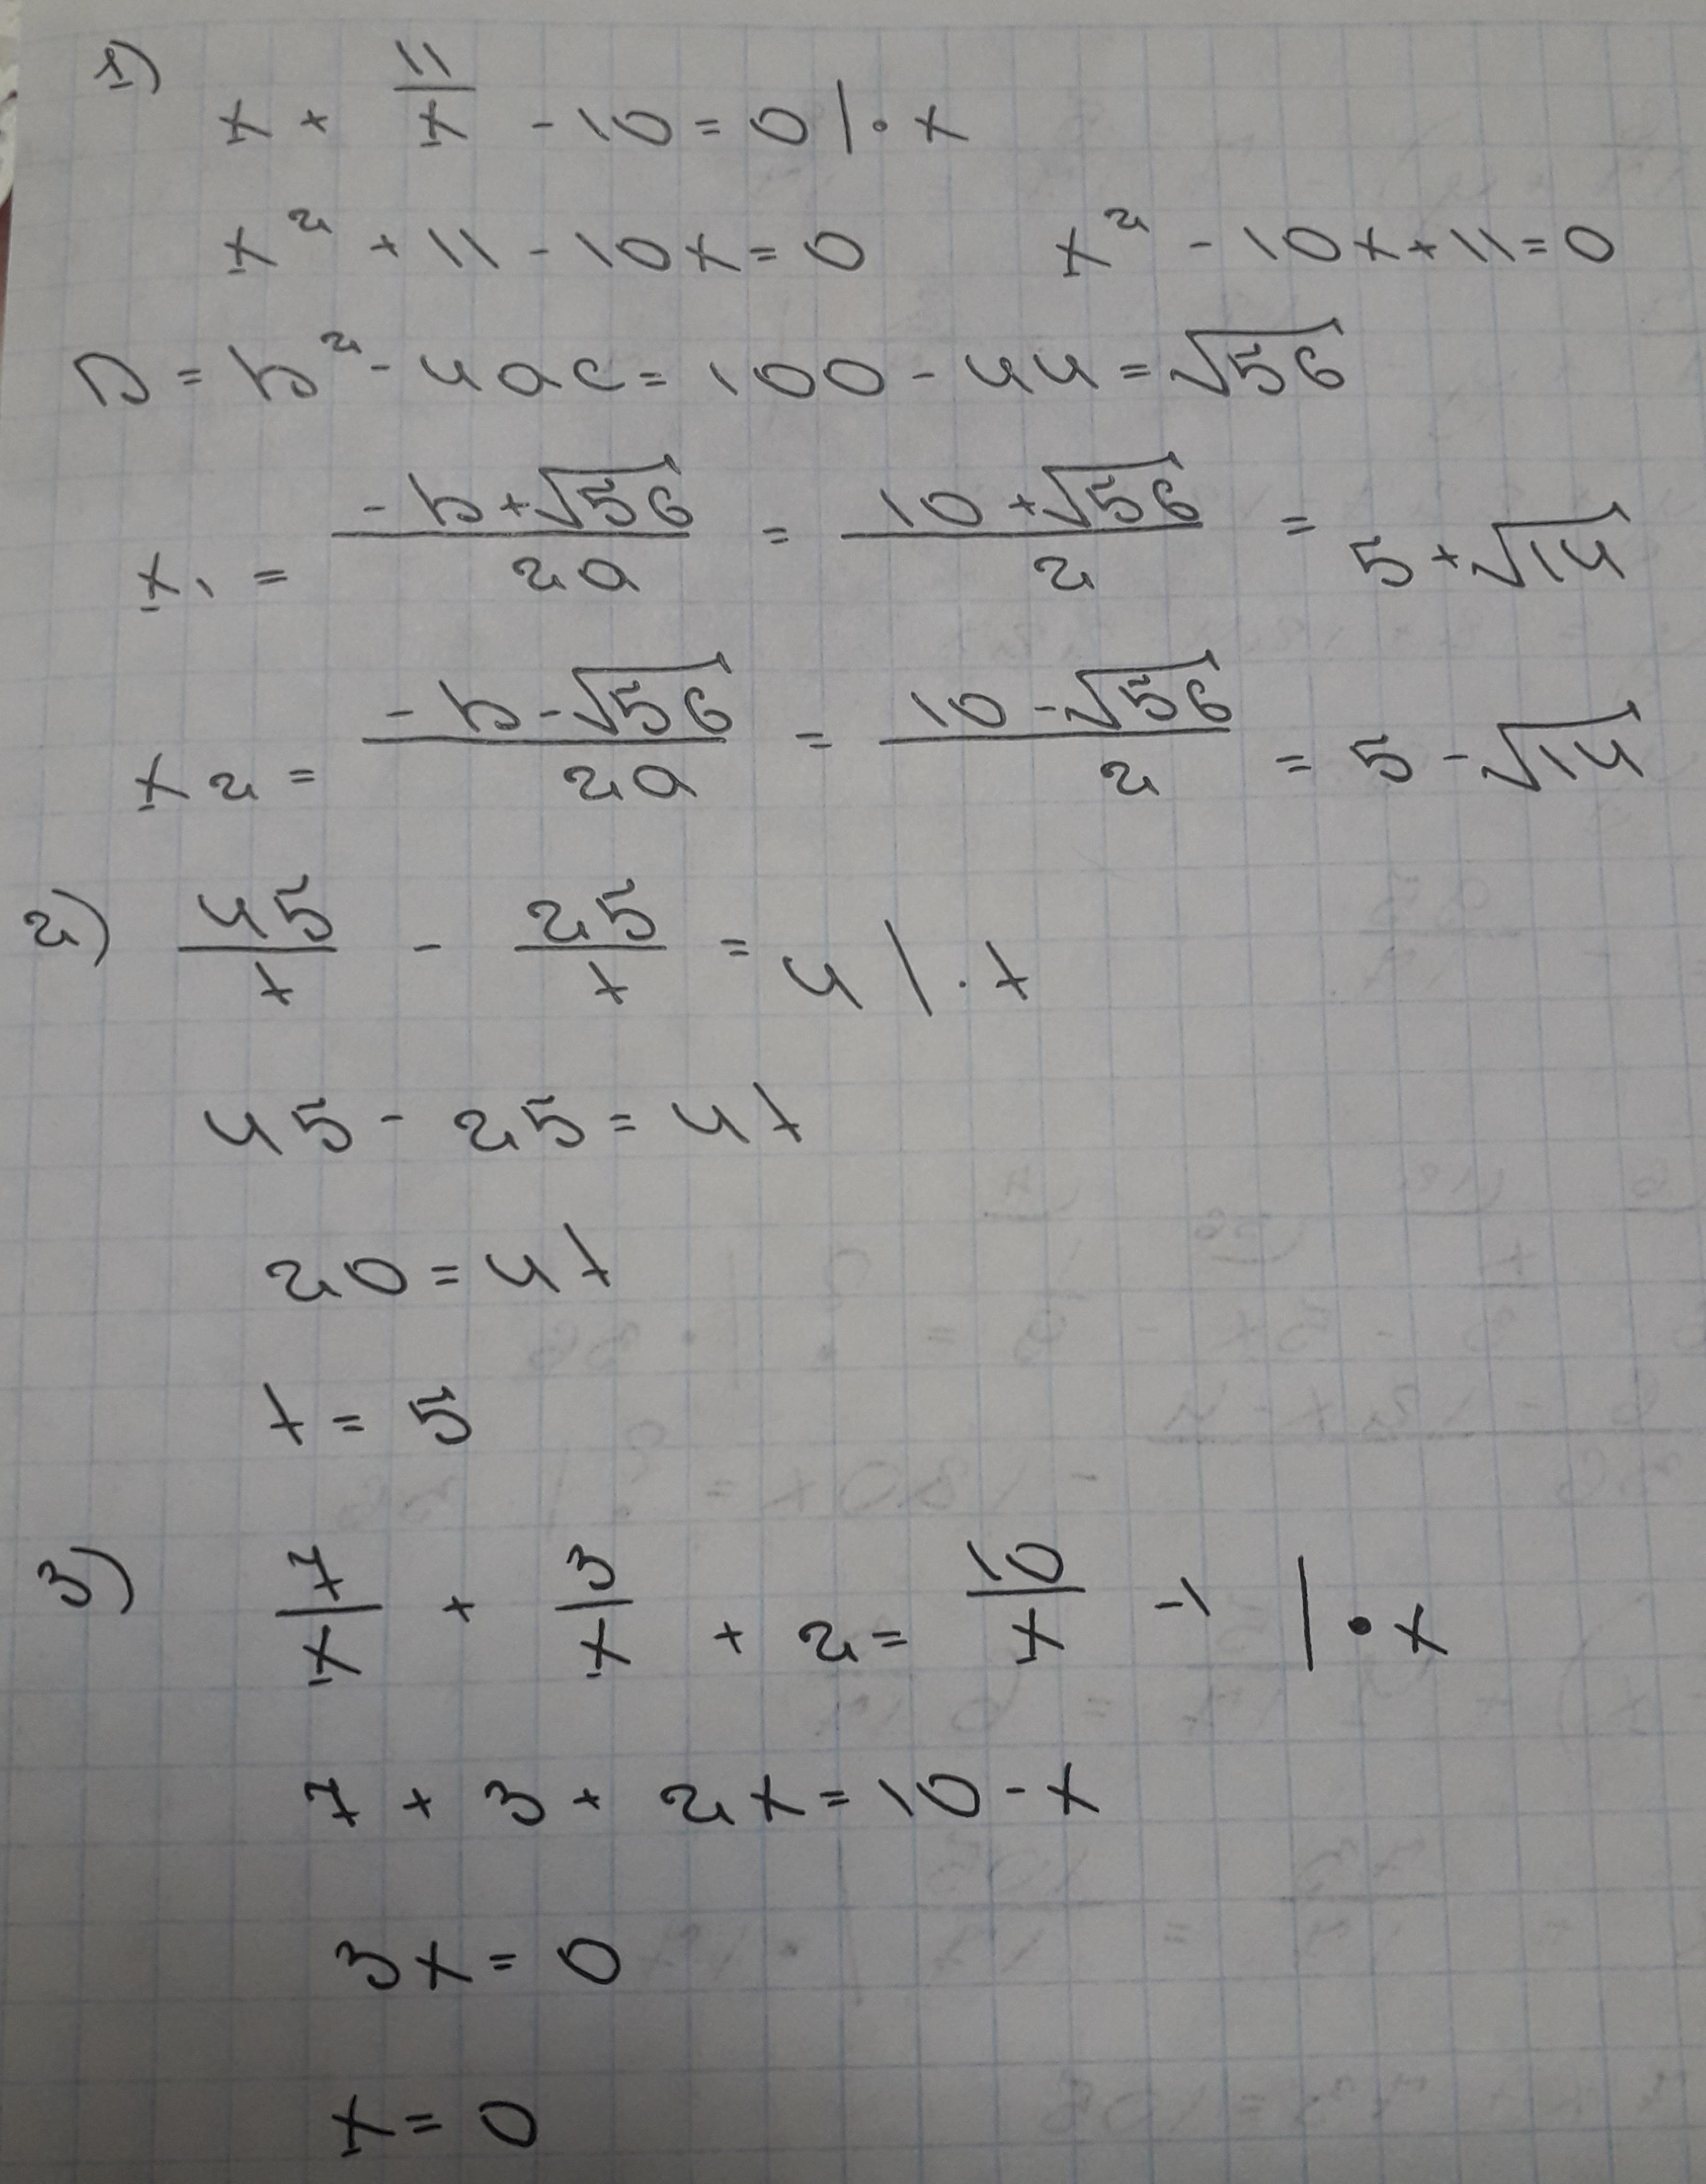 1) x + 11/x - 10 = 0 | · x
x² + 11 - 10x = 0    x² - 10x + 11 = 0
D = b² - 4ac = 100 - 44 = √56
x₁ = (-b + √56)/2a = (10 + √56)/2 = 5 + √14
x₂ = (-b - √56)/2a = (10 - √56)/2 = 5 - √14
2) 45/t - 25/t = 4 | · t
45 - 25 = 4t
20 = 4t
t = 5
3) 7/x + 3/x + 2 = 10/x - 1 | · x
7 + 3 + 2x = 10 - x
3x = 0
x = 0